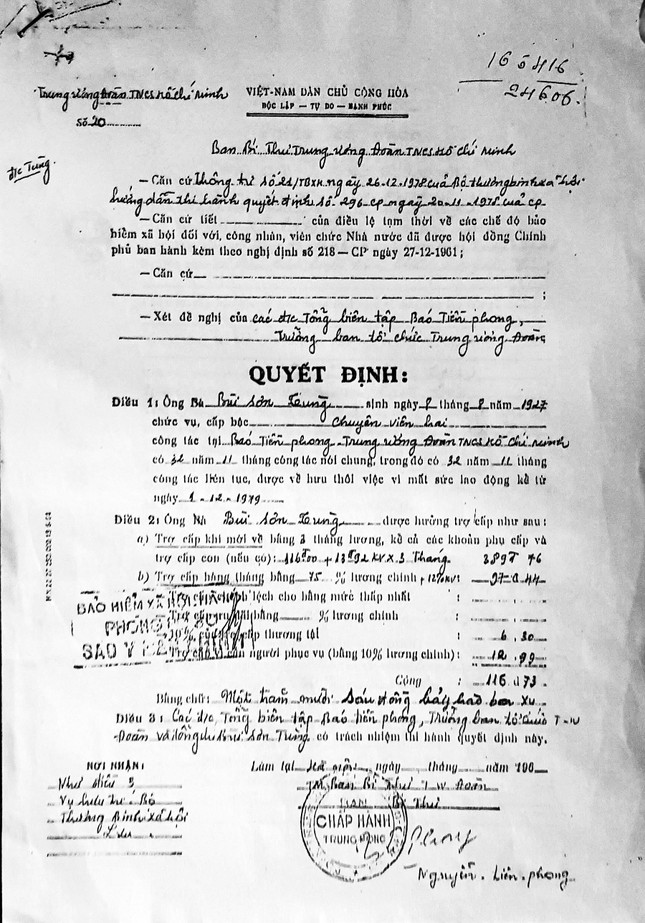 16 5 416
24606.
Trung ương Đoàn TNCS Hồ Chí Minh
Số 20
VIỆT-NAM DÂN CHỦ CỘNG HÒA
ĐỘC LẬP — TỰ DO — HẠNH PHÚC
đ/c Tùng.
Ban Bí Thư Trung ương Đoàn TNCS Hồ Chí Minh
— Căn cứ Thông tư số 21/TBXH ngày 26-12-1978 của Bộ thương binh xã hội
hướng dẫn thi hành quyết định số 296-cp ngày 20-11-1978 của cp
— Căn cứ tiết của điều lệ tạm thời về các chế độ bảo
hiểm xã hội đối với, công nhân, viên chức Nhà nước đã được hội đồng Chính
phủ ban hành kèm theo nghị định số 218 — CP ngày 27-12-1961;
— Căn cứ
— Xét đề nghị của các đ/c Tổng biên tập Báo Tiền phong,
Trưởng ban tổ chức Trung ương Đoàn
QUYẾT ĐỊNH:
Điều 1: Ông Bà Bùi Sơn Tùng sinh ngày 8 tháng 8 năm 1927
chức vụ, cấp bậc Chuyên viên hai
công tác tại Báo Tiền phong - Trung ương Đoàn TNCS Hồ Chí Minh
có 32 năm 11 tháng công tác nói chung, trong đó có 32 năm 11 tháng
công tác liên tục, được về hưu thôi việc vì mất sức lao động kể từ
ngày 1-12-1979
Điều 2: Ông Bà Bùi Sơn Tùng được hưởng trợ cấp như sau:
a) Trợ cấp khi mới về bằng 3 tháng lương, kể cả các khoản phụ cấp và
trợ cấp con (nếu có): 116đ00 + 13đ92 KV x 3 Tháng 389đ 76
b) Trợ cấp hàng tháng bằng 75 % lương chính + 12% KV: 97đ44
lệch cho bằng mức thấp nhất :
bằng % lương chính :
cấp thương tật : 6.30
người phục vụ (bằng 10% lương chính): 12,99
BẢO HIỂM XÃ HỘI
PHÒNG
SAO Y
Cộng : 116.đ73
Bằng chữ: Một trăm mười sáu đồng bảy hào ba xu
Điều 3: Các đ/c, Tổng biên tập Báo tiền phong, Trưởng Ban tổ chức T-W
Đoàn và đồng chí Bùi Sơn Tùng có trách nhiệm thi hành quyết định này.
NƠI NHẬN:
Như điều 3
Vụ hưu trí Bộ
Thương Binh Xã hội
Lưu
Làm tại Hà Nội, ngày tháng năm 190
TM Ban Bí Thư T.W Đoàn
Bí Thư
BAN
CHẤP HÀNH
TRUNG ƯƠNG
Phong
Nguyễn . Tiên . phong